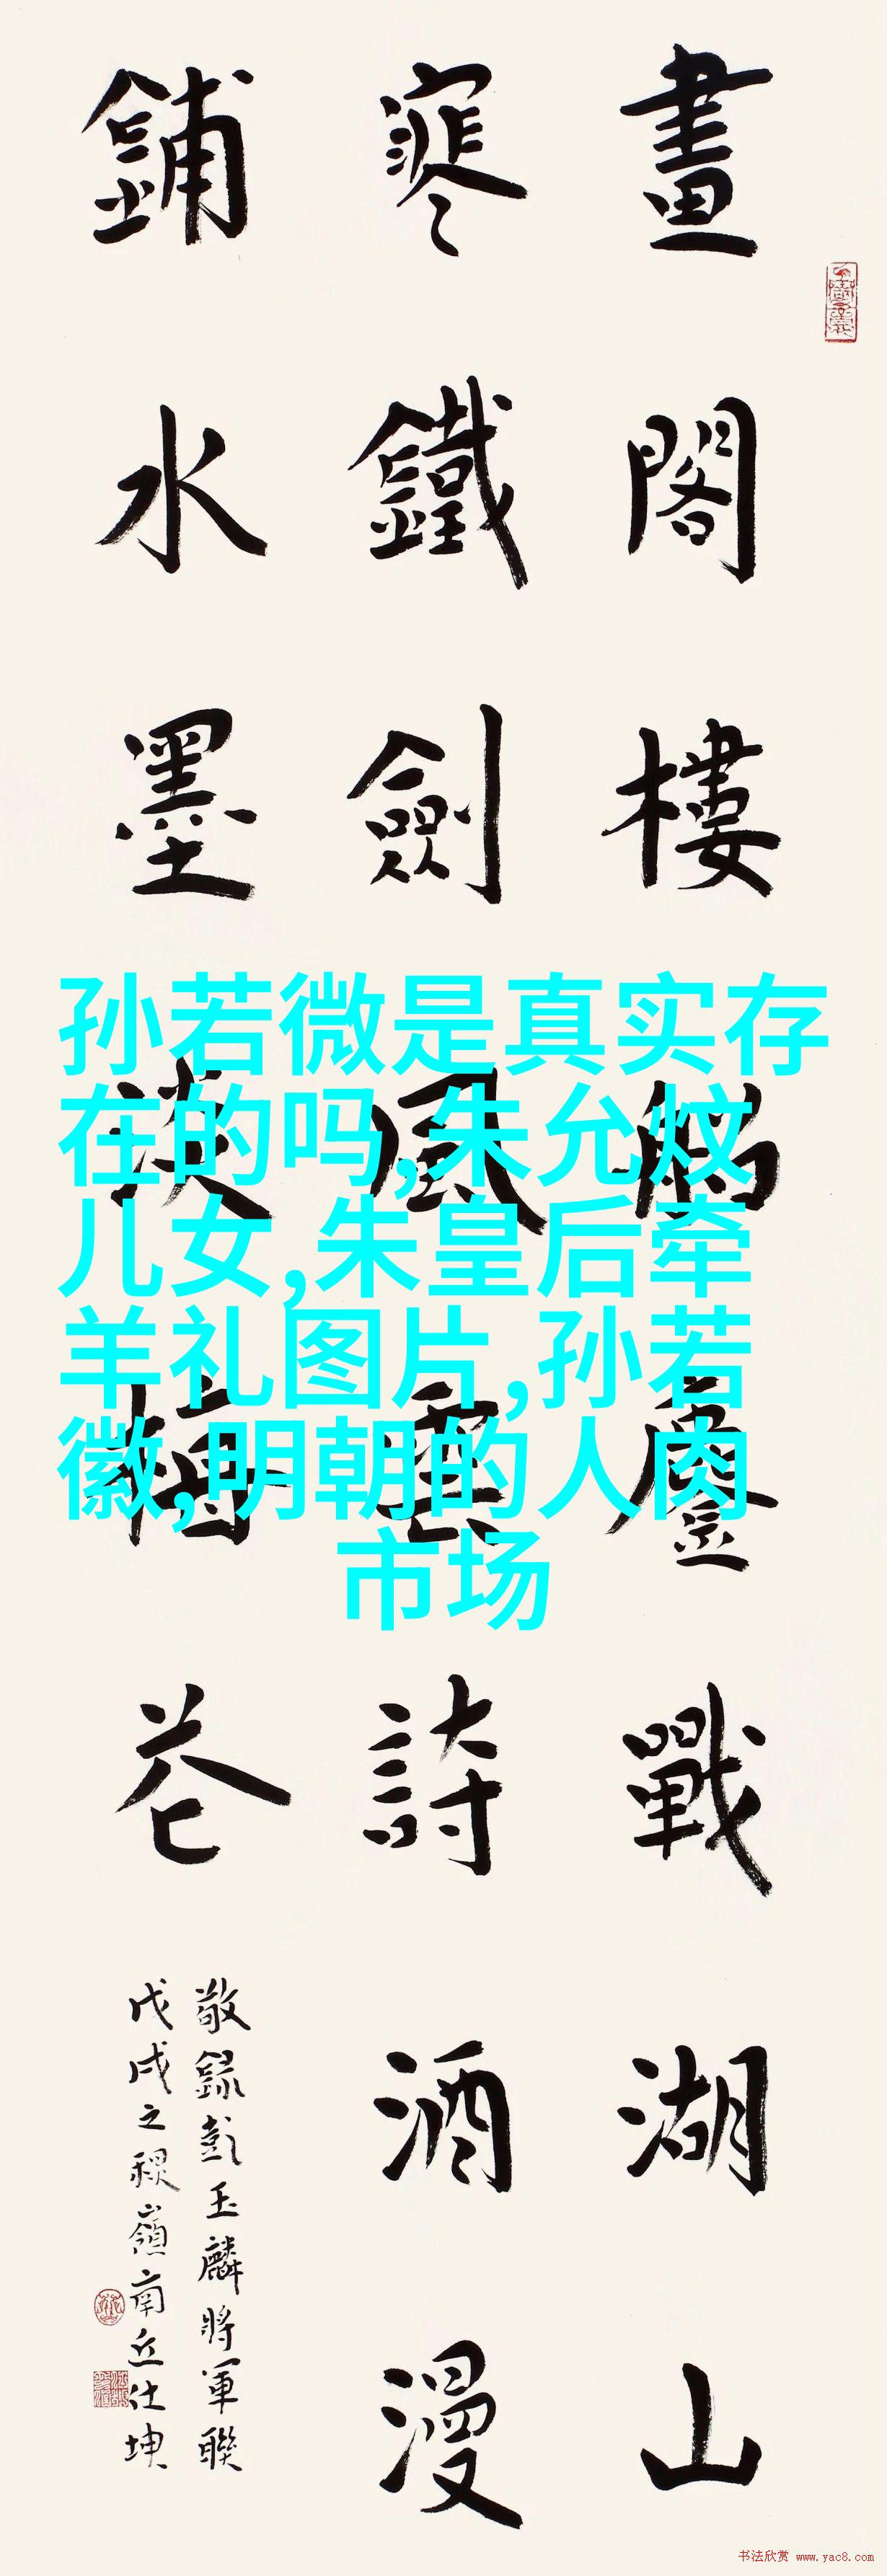 畫閣樓船鏖戰湖山
寒鐵劍風雲詩酒漫
鋪水墨淡梅花
敬錄彭玉麟將軍聯
戊戌之穐嶺南丘仕坤
孙若微是真实存
在的吗,朱允炆
儿女,朱皇后牵
羊礼图片,孙若
徽,明朝的人肉
市场
书法欣赏 www.yac8.com